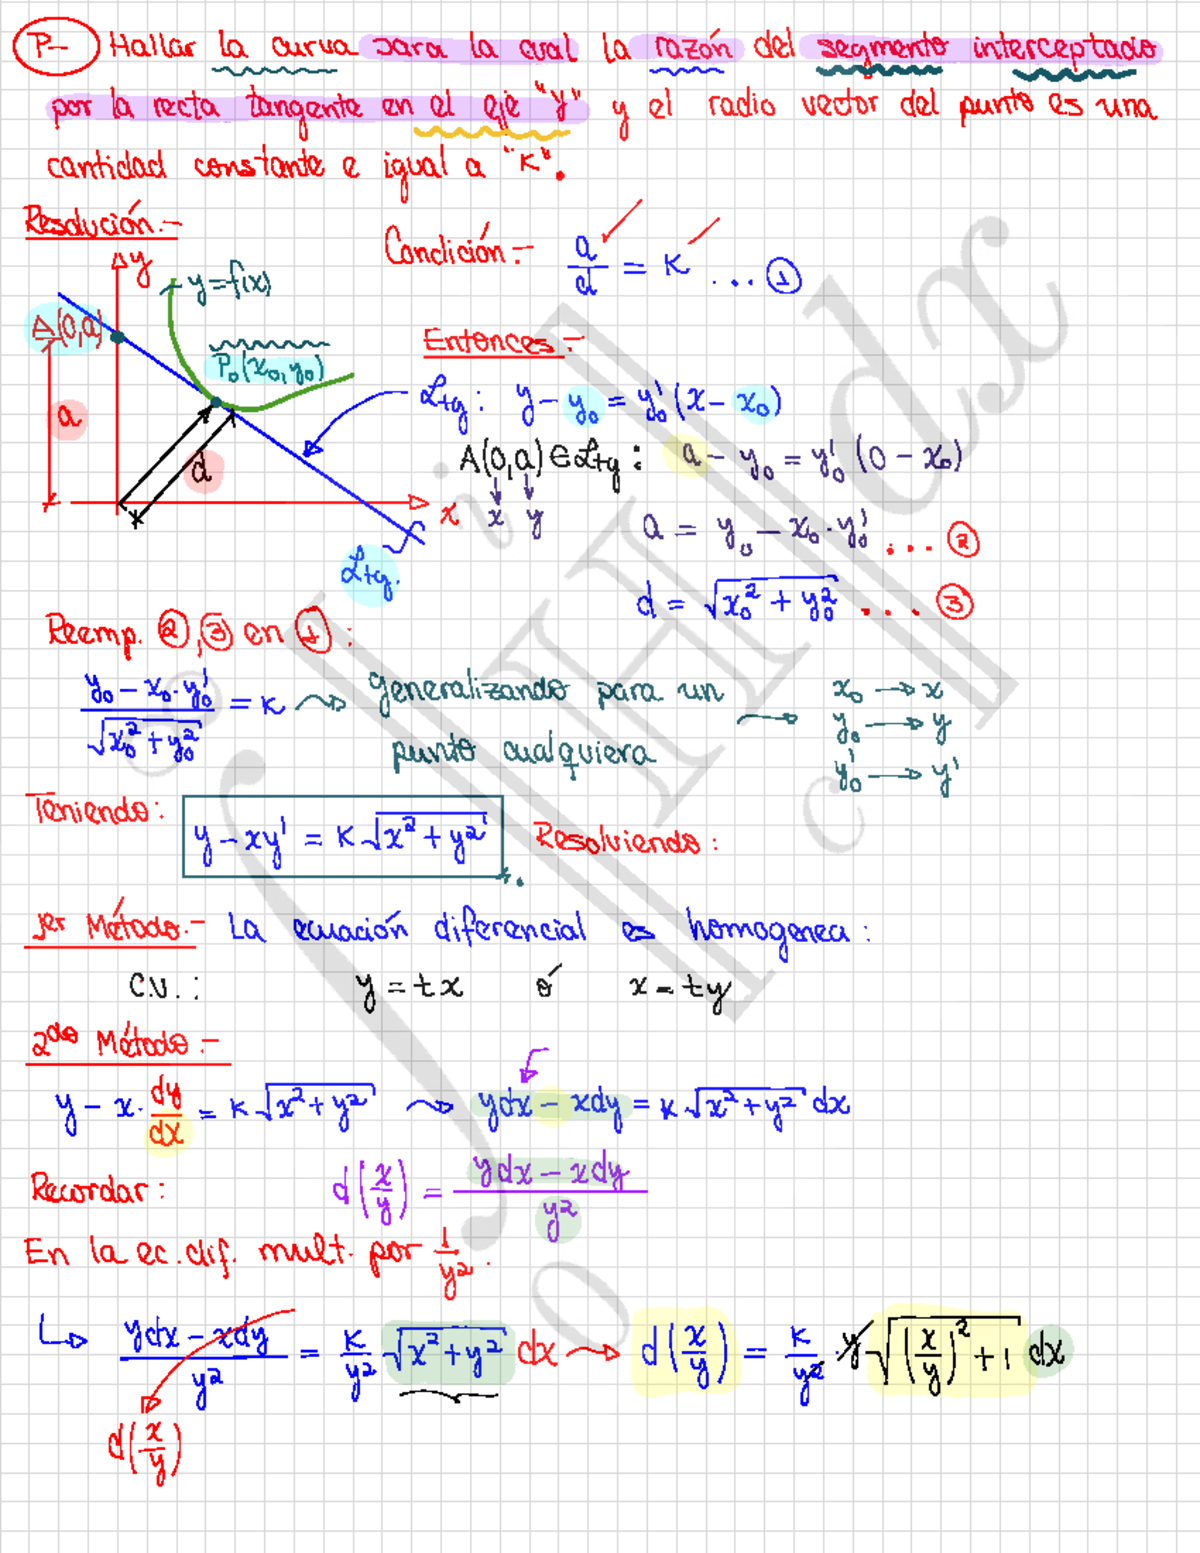 P- Hallar la curva para la cual la razón del segmento interceptado
por la recta tangente en el eje "y" y el radio vector del punto es una
cantidad constante e igual a "K".
Resolución.-
Condición.- a/d = K ... ①
y
y=f(x)
A(0,a)
P₀(x₀,y₀)
a
d
x
Ltg.
Entonces.-
Ltg: y-y₀ = y₀'(x-x₀)
A(0,a) ∈ Ltg: a-y₀ = y₀'(0-x₀)
x y
a = y₀ - x₀·y₀' ... ②
d = √(x₀² + y₀²) ... ③
Reemp. ②,③ en ①:
(y₀-x₀·y₀')/√(x₀²+y₀²) = K ⤳ generalizando para un punto cualquiera →
x₀ → x
y₀ → y
y₀' → y'
Teniendo: y-xy' = K√(x²+y²) Resolviendo:
1er Método.- La ecuación diferencial es homogenea:
C.V.: y=tx ó x=ty
2do Método.-
y-x·dy/dx = K√(x²+y²) ⤳ ydx-xdy = K√(x²+y²) dx
Recordar: d(x/y) = (ydx-xdy)/y²
En la ec.dif. mult. por 1/y².
↳ (ydx-xdy)/y² = K/y² √(x²+y²) dx ⤳ d(x/y) = K/y² · y√((x/y)²+1) dx
d(x/y)
∫ H dx